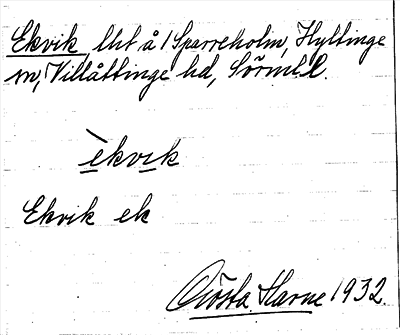 Ekvik, lht å 1 Sparreholm, Hyltinge
sn, Villåttinge hd, Sörml l.
èkvik
Ekvik ek
Gösta Harne 1932.